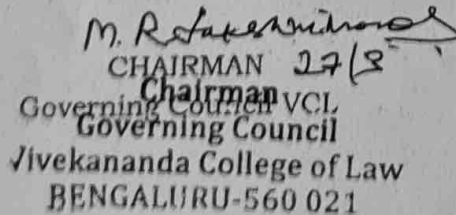 M.
CHAIRMAN 27/8
Chairman
Governing Council VCL
Governing Council
Vivekananda College of Law
BENGALURU-560 021